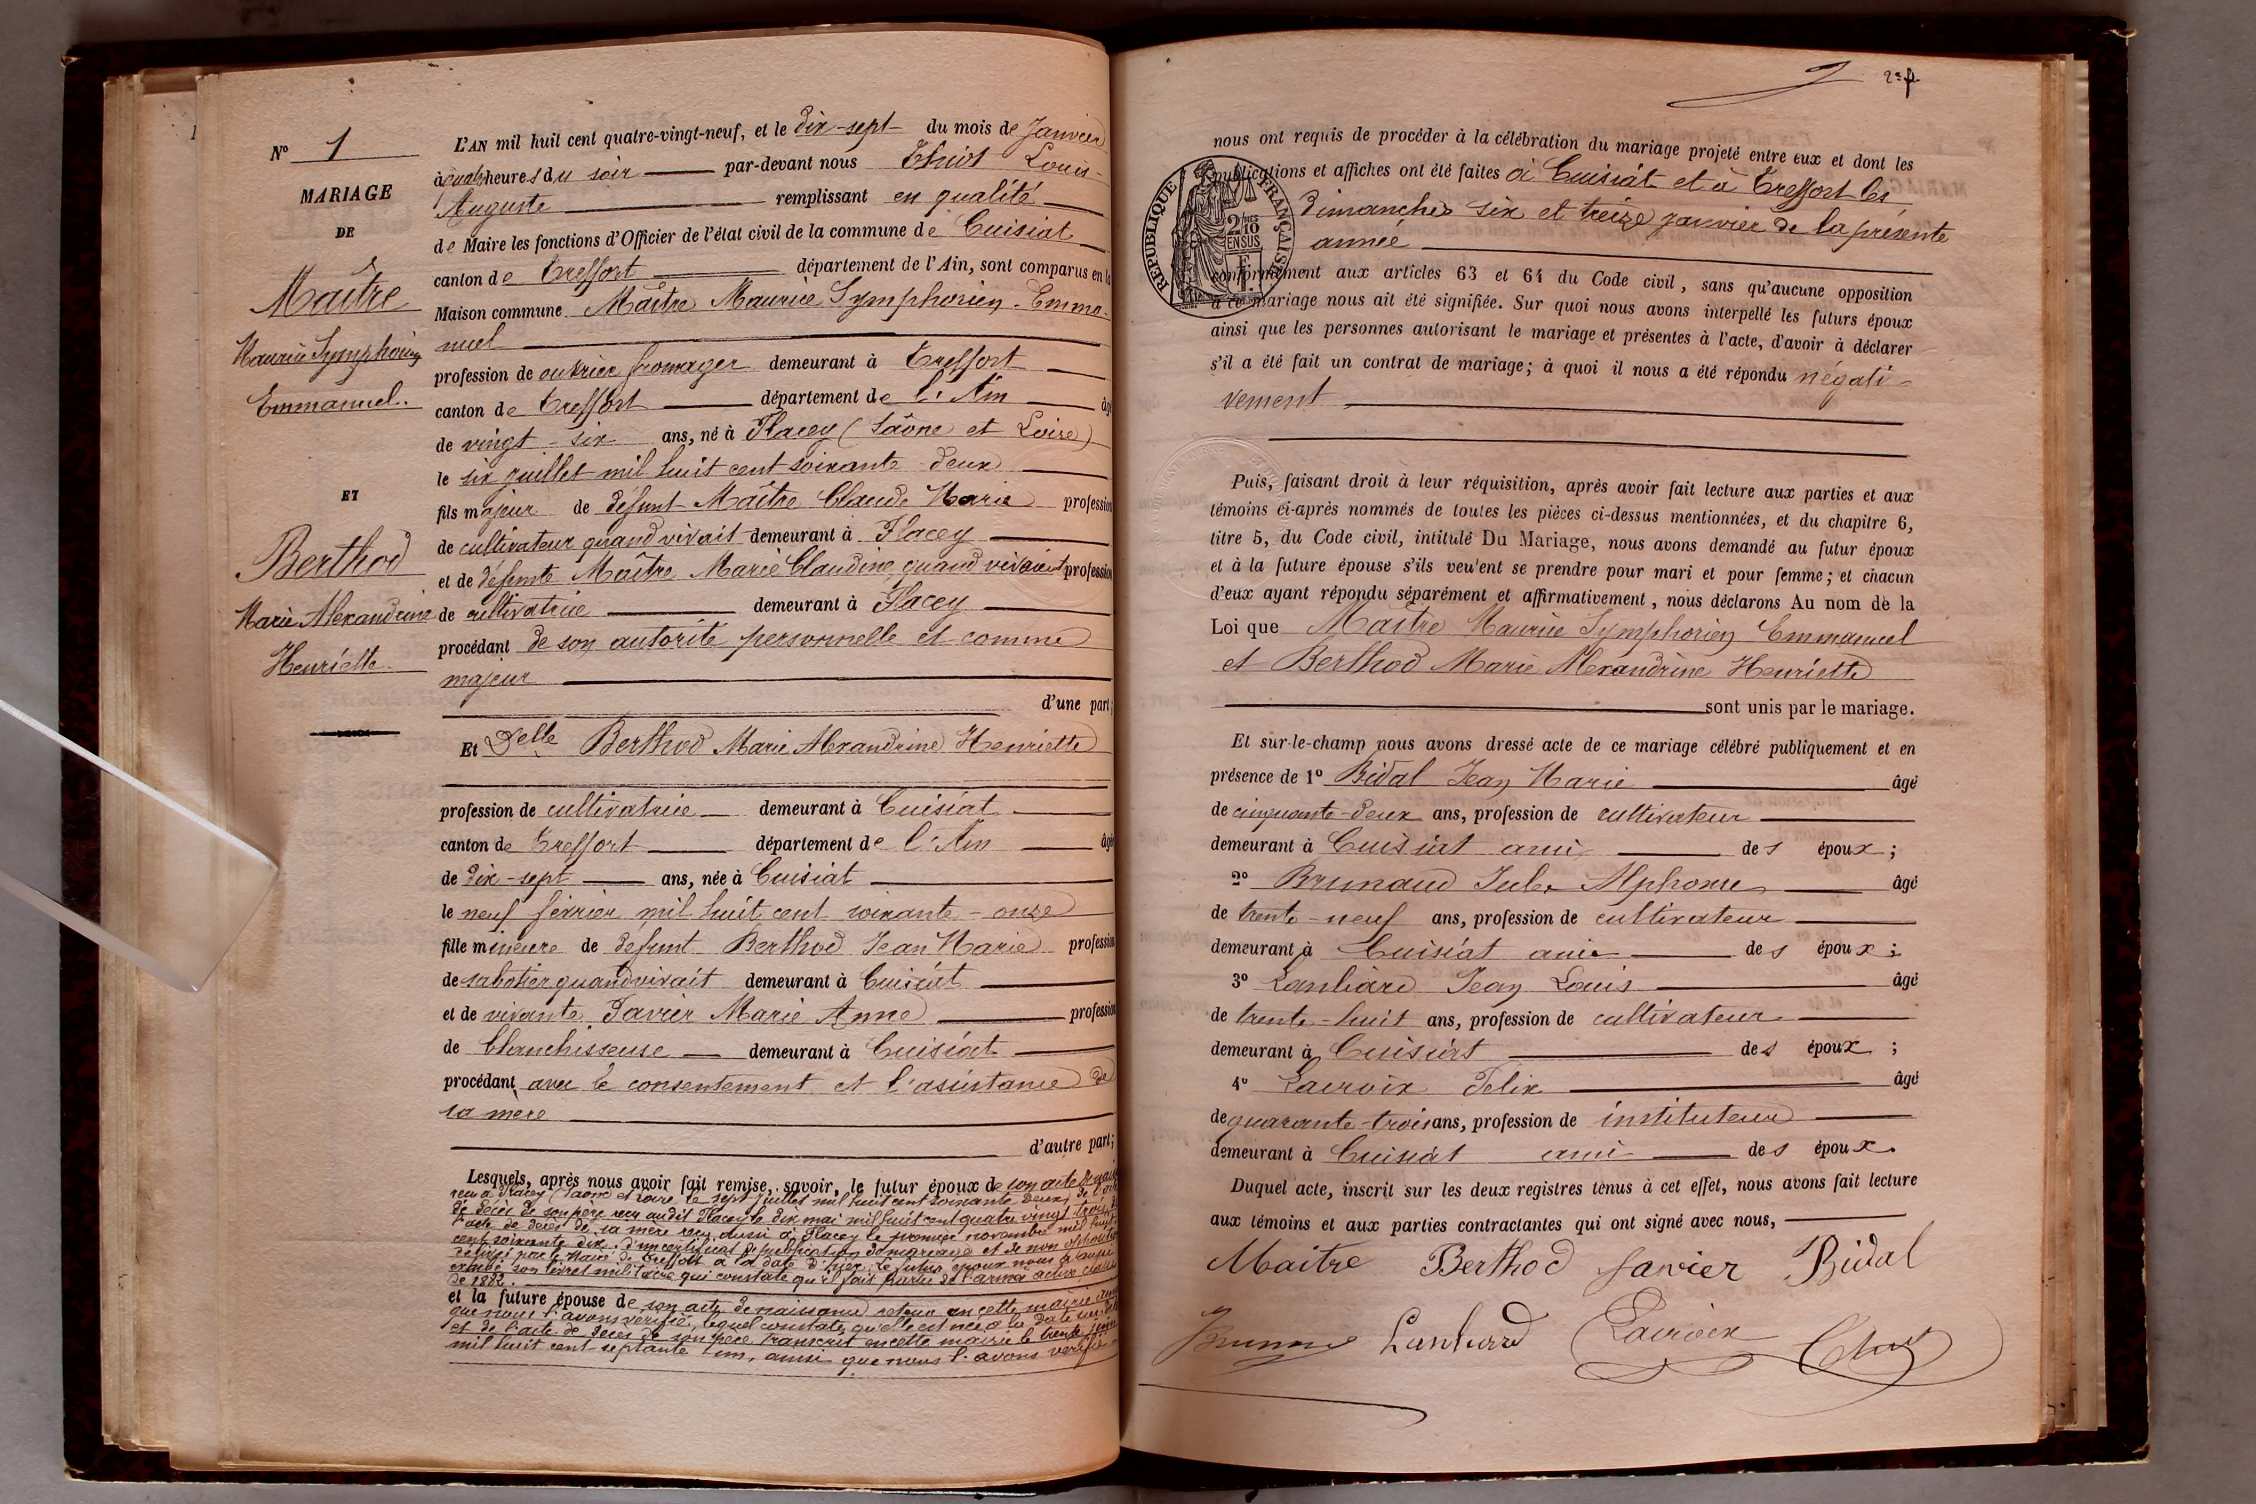 N° 1
MARIAGE
DE
Maître
Maurice Symphorien
Emmanuel.
ET
Berthod
Marie Alexandrine
Henriette
L'AN mil huit cent quatre-vingt-neuf, et le dix-sept du mois de Janvier
à quatre heures du soir par-devant nous Thuot Louis-
Auguste remplissant en qualité
de Maire les fonctions d'Officier de l'état civil de la commune de Cuisiat
canton de Treffort département de l'Ain, sont comparus en la
Maison commune Maître Maurice Symphorien Emma-
nuel
profession de ouvrier fromager demeurant à Treffort
canton de Treffort département de l'Ain âgé
de vingt-six ans, né à Flacey (Saône et Loire)
le six juillet mil huit cent soixante-deux
fils majeur de défunt Maître Claude Marie profession
de cultivateur quand vivait demeurant à Flacey
et de défunte Maître Marie Claudine, quand vivait profession
de cultivatrice demeurant à Flacey
procédant de son autorité personnelle et comme
majeur
d'une part;
Et Delle Berthod Marie Alexandrine Henriette
profession de cultivatrice demeurant à Cuisiat
canton de Treffort département de l'Ain âgé
de dix-sept ans, née à Cuisiat
le neuf février mil huit cent soixante-onze
fille mineure de défunt Berthod Jean Marie profession
de sabotier quand vivait demeurant à Cuisiat
et de vivante Javier Marie Anne profession
de blanchisseuse demeurant à Cuisiat
procédant avec le consentement et l'assistance de
sa mère
d'autre part;
Lesquels, après nous avoir fait remise, savoir, le futur époux de son acte de naiss
reçu à Flacey (Saône et Loire) le sept juillet mil huit cent soixante deux, de l'acte
de décès de son père reçu audit Flacey le dix mai mil huit cent quatre vingt trois, de
l'acte de décès de sa mère reçu aussi à Flacey le premier novembre mil huit
cent soixante dix, d'un certificat de publication de mariage et de non opposition
délivré par le Maire de Treffort à la date d'hier. Le futur époux nous a aussi
exhibé son livret militaire qui constate qu'il fait partie de l'armée active classe
de 1882.
et la future épouse de son acte de naissance retenu en cette mairie ainsi
que nous l'avons vérifié, lequel constate qu'elle est née à la date sus dite
et de l'acte de décès de son père transcrit en cette mairie le trente juin
mil huit cent septante un, ainsi que nous l'avons vérifié
2e f.
nous ont requis de procéder à la célébration du mariage projeté entre eux et dont les
publications et affiches ont été faites à Cuisiat et à Treffort les
dimanches six et treize janvier de la présente
année
REPUBLIQUE FRANÇAISE
2/10 EN SUS
conformément aux articles 63 et 64 du Code civil, sans qu'aucune opposition
à ce mariage nous ait été signifiée. Sur quoi nous avons interpellé les futurs époux
ainsi que les personnes autorisant le mariage et présentes à l'acte, d'avoir à déclarer
s'il a été fait un contrat de mariage; à quoi il nous a été répondu négati-
vement
Puis, faisant droit à leur réquisition, après avoir fait lecture aux parties et aux
témoins ci-après nommés de toutes les pièces ci-dessus mentionnées, et du chapitre 6,
titre 5, du Code civil, intitulé Du Mariage, nous avons demandé au futur époux
et à la future épouse s'ils veulent se prendre pour mari et pour femme; et chacun
d'eux ayant répondu séparément et affirmativement, nous déclarons Au nom de la
Loi que Maître Maurice Symphorien Emmanuel
et Berthod Marie Alexandrine Henriette
sont unis par le mariage.
Et sur-le-champ nous avons dressé acte de ce mariage célébré publiquement et en
présence de 1° Bidal Jean Marie âgé
de cinquante-deux ans, profession de cultivateur
demeurant à Cuisiat ami des époux;
2° Brunaud Jules Alphonse âgé
de trente-neuf ans, profession de cultivateur
demeurant à Cuisiat ami des époux;
3° Lanliard Jean Louis âgé
de trente-huit ans, profession de cultivateur
demeurant à Cuisiat des époux;
4° Lacroix Félix âgé
de quarante-trois ans, profession de instituteur
demeurant à Cuisiat ami des époux.
Duquel acte, inscrit sur les deux registres tenus à cet effet, nous avons fait lecture
aux témoins et aux parties contractantes qui ont signé avec nous,
Maitre Berthod Javier Bidal
Lanliard Lacroix